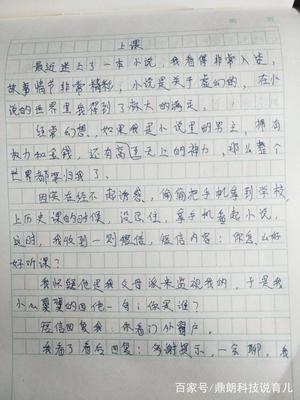 上课
最近迷上了一本小说，我看得非常入迷，
故事情节非常精彩，小说是关于虚幻的，在小
说的世界里我得到了极大的满足。
经常幻想，如果我是小说里的男主，拥有
权力和金钱，还有高高无上的神力，那么整个
世界都要归我了。
因实在经不起诱惑，偷偷把手机拿到学校，
上历史课的时候，没忍住，拿手机看起小说，
这时，我收到一则短信，短信内容：你怎么不好
好听课？
我怀疑他是我父母派来监视我的，于是我
小心翼翼的回他一条：你是谁？
短信回复我：你看门外窗户。
我看了看后回复：多谢提示，一会聊，我
百家号/鼎朗科技说育儿